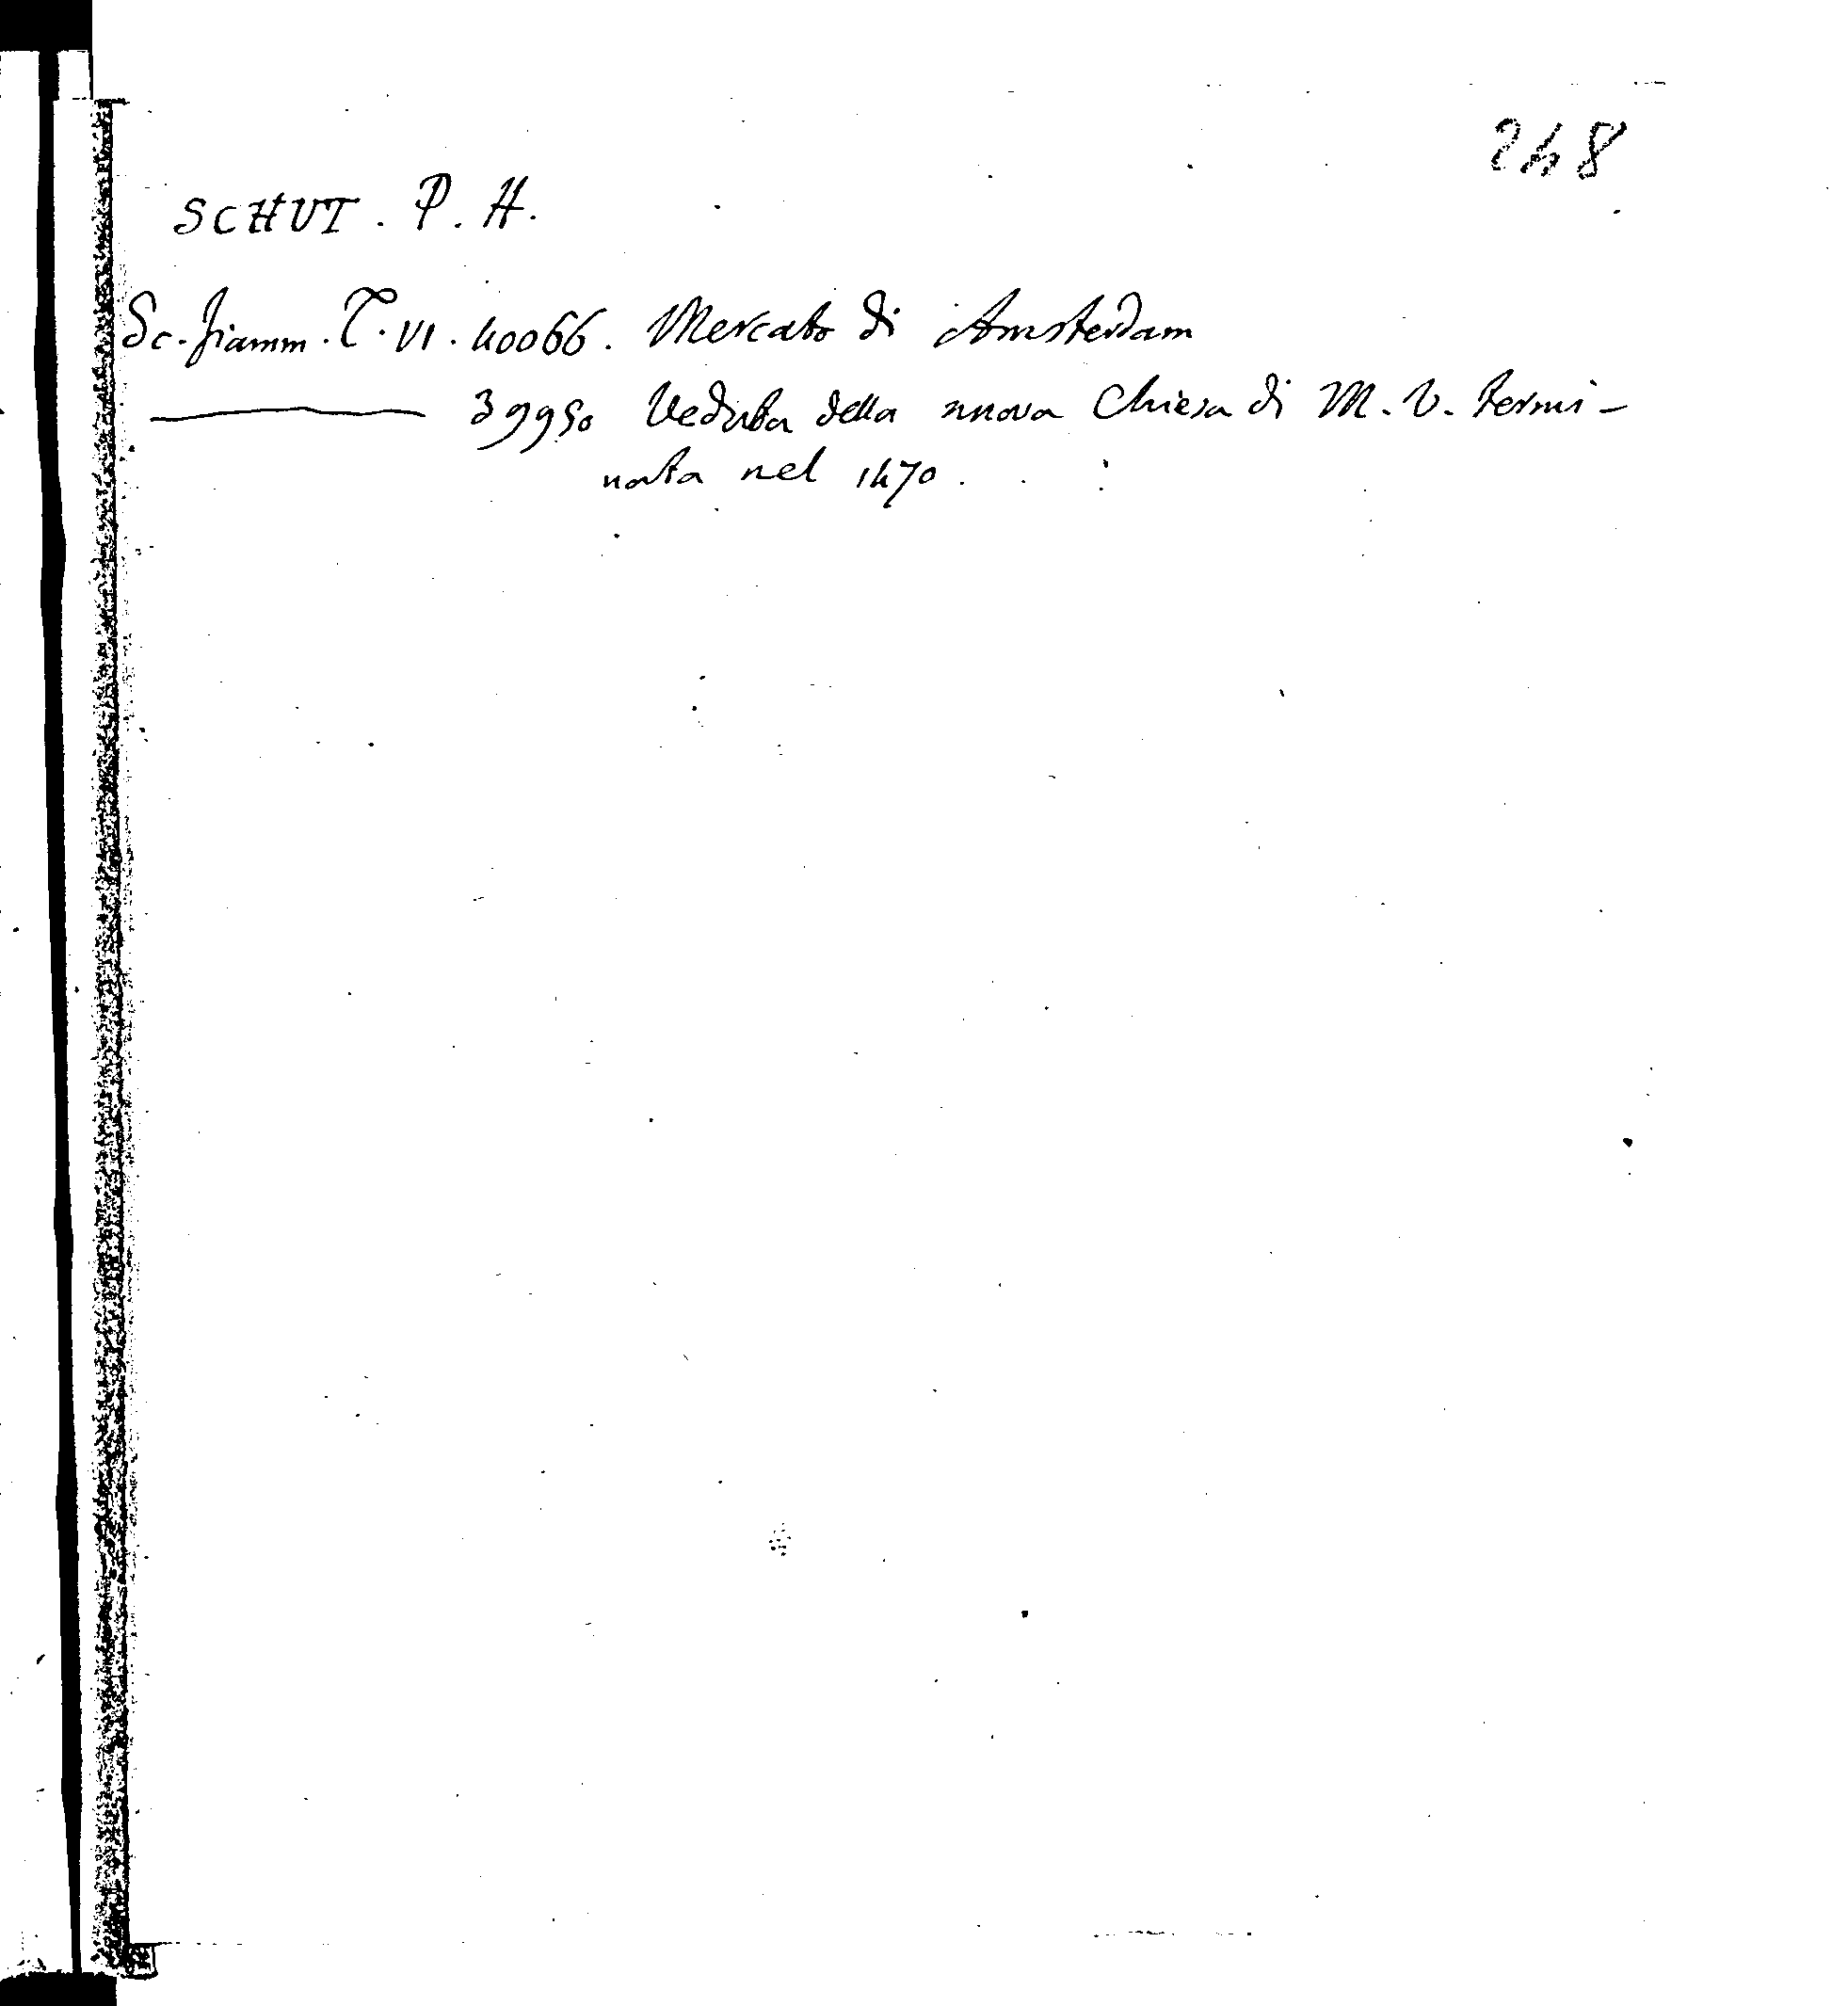 248
SCHUT. P. H.
Sc. fiamm. T. VI. 40066. Mercato di Amsterdam
39950 Veduta della nuova Chiesa di M. V. termi-
nata nel 1470.